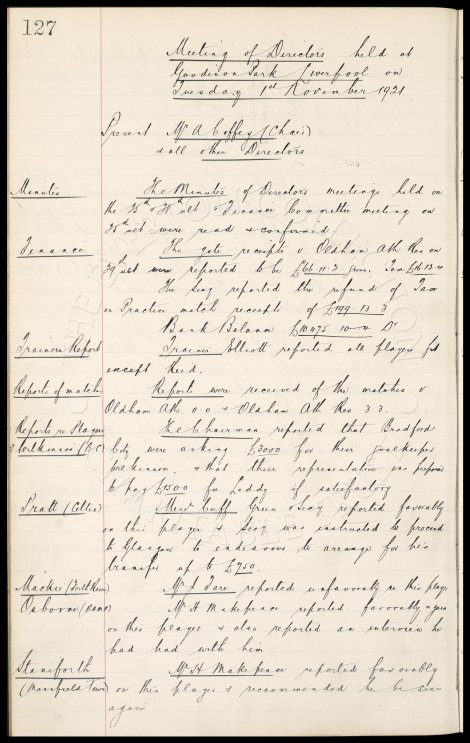 127
Meeting of Directors held at
Goodison Park Liverpool on
Tuesday 1st November 1921
Present Mr A Coffey (Chair)
& all other Directors
Minutes The Minutes of Directors meetings held on
the 25th & 28th ult & Finance Committee meeting on
25th ult were read & confirmed
Finance The gate receipts v Oldham Ath Res on
29th ult were reported to be £66-11-3 gross. Tax
The Secy reported the refund of Tax
on Practice match receipts of £199-13-3
Bank Balance £10475 10-4 Dr
Trainers Report Trainer Elliott reported all players fit
except Reid.
Reports of match Reports were received of the matches v
Oldham Ath 0.0 & Oldham Ath Res 3 3.
Reports re Players The Chairman reported that Bradford
& Wilkinson (B.C) City were asking £3000 for their goalkeeper
Wilkinson, & that their representative was prepared
to pay £1500 for Leddy if satisfactory
Pratt (Celtic) Messrs Cuff Green & Secy reported favorably
on this player & Secy was instructed to proceed
to Glasgow to endeavour to arrange for his
transfer up to £750.
Mackie Mr J Fare reported unfavorably re this player
Osborne Mr H Makepeace reported favorably again
on this player & also reported an interview he
had had with him
Staniforth Mr H Makepeace reported favorably
(Mansfield Town) on this player & recommended he be seen
again